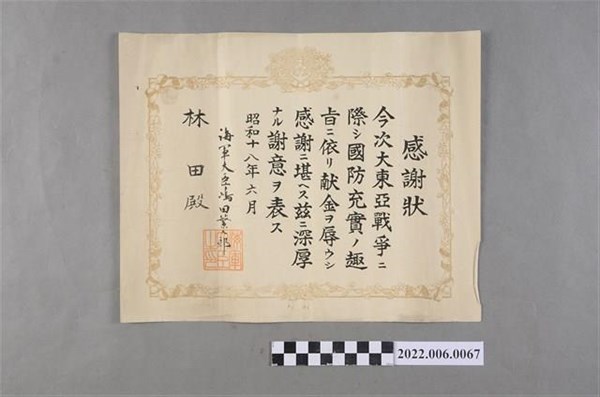 感謝狀
今次大東亞戰爭ニ
際シ國防充實ノ趣
旨ニ依リ献金ヲ辱ウシ
感謝ニ堪ヘス茲ニ深厚
ナル謝意ヲ表ス
昭和十八年六月
海軍大臣嶋田繁太郎
林田殿
2022.006.0067